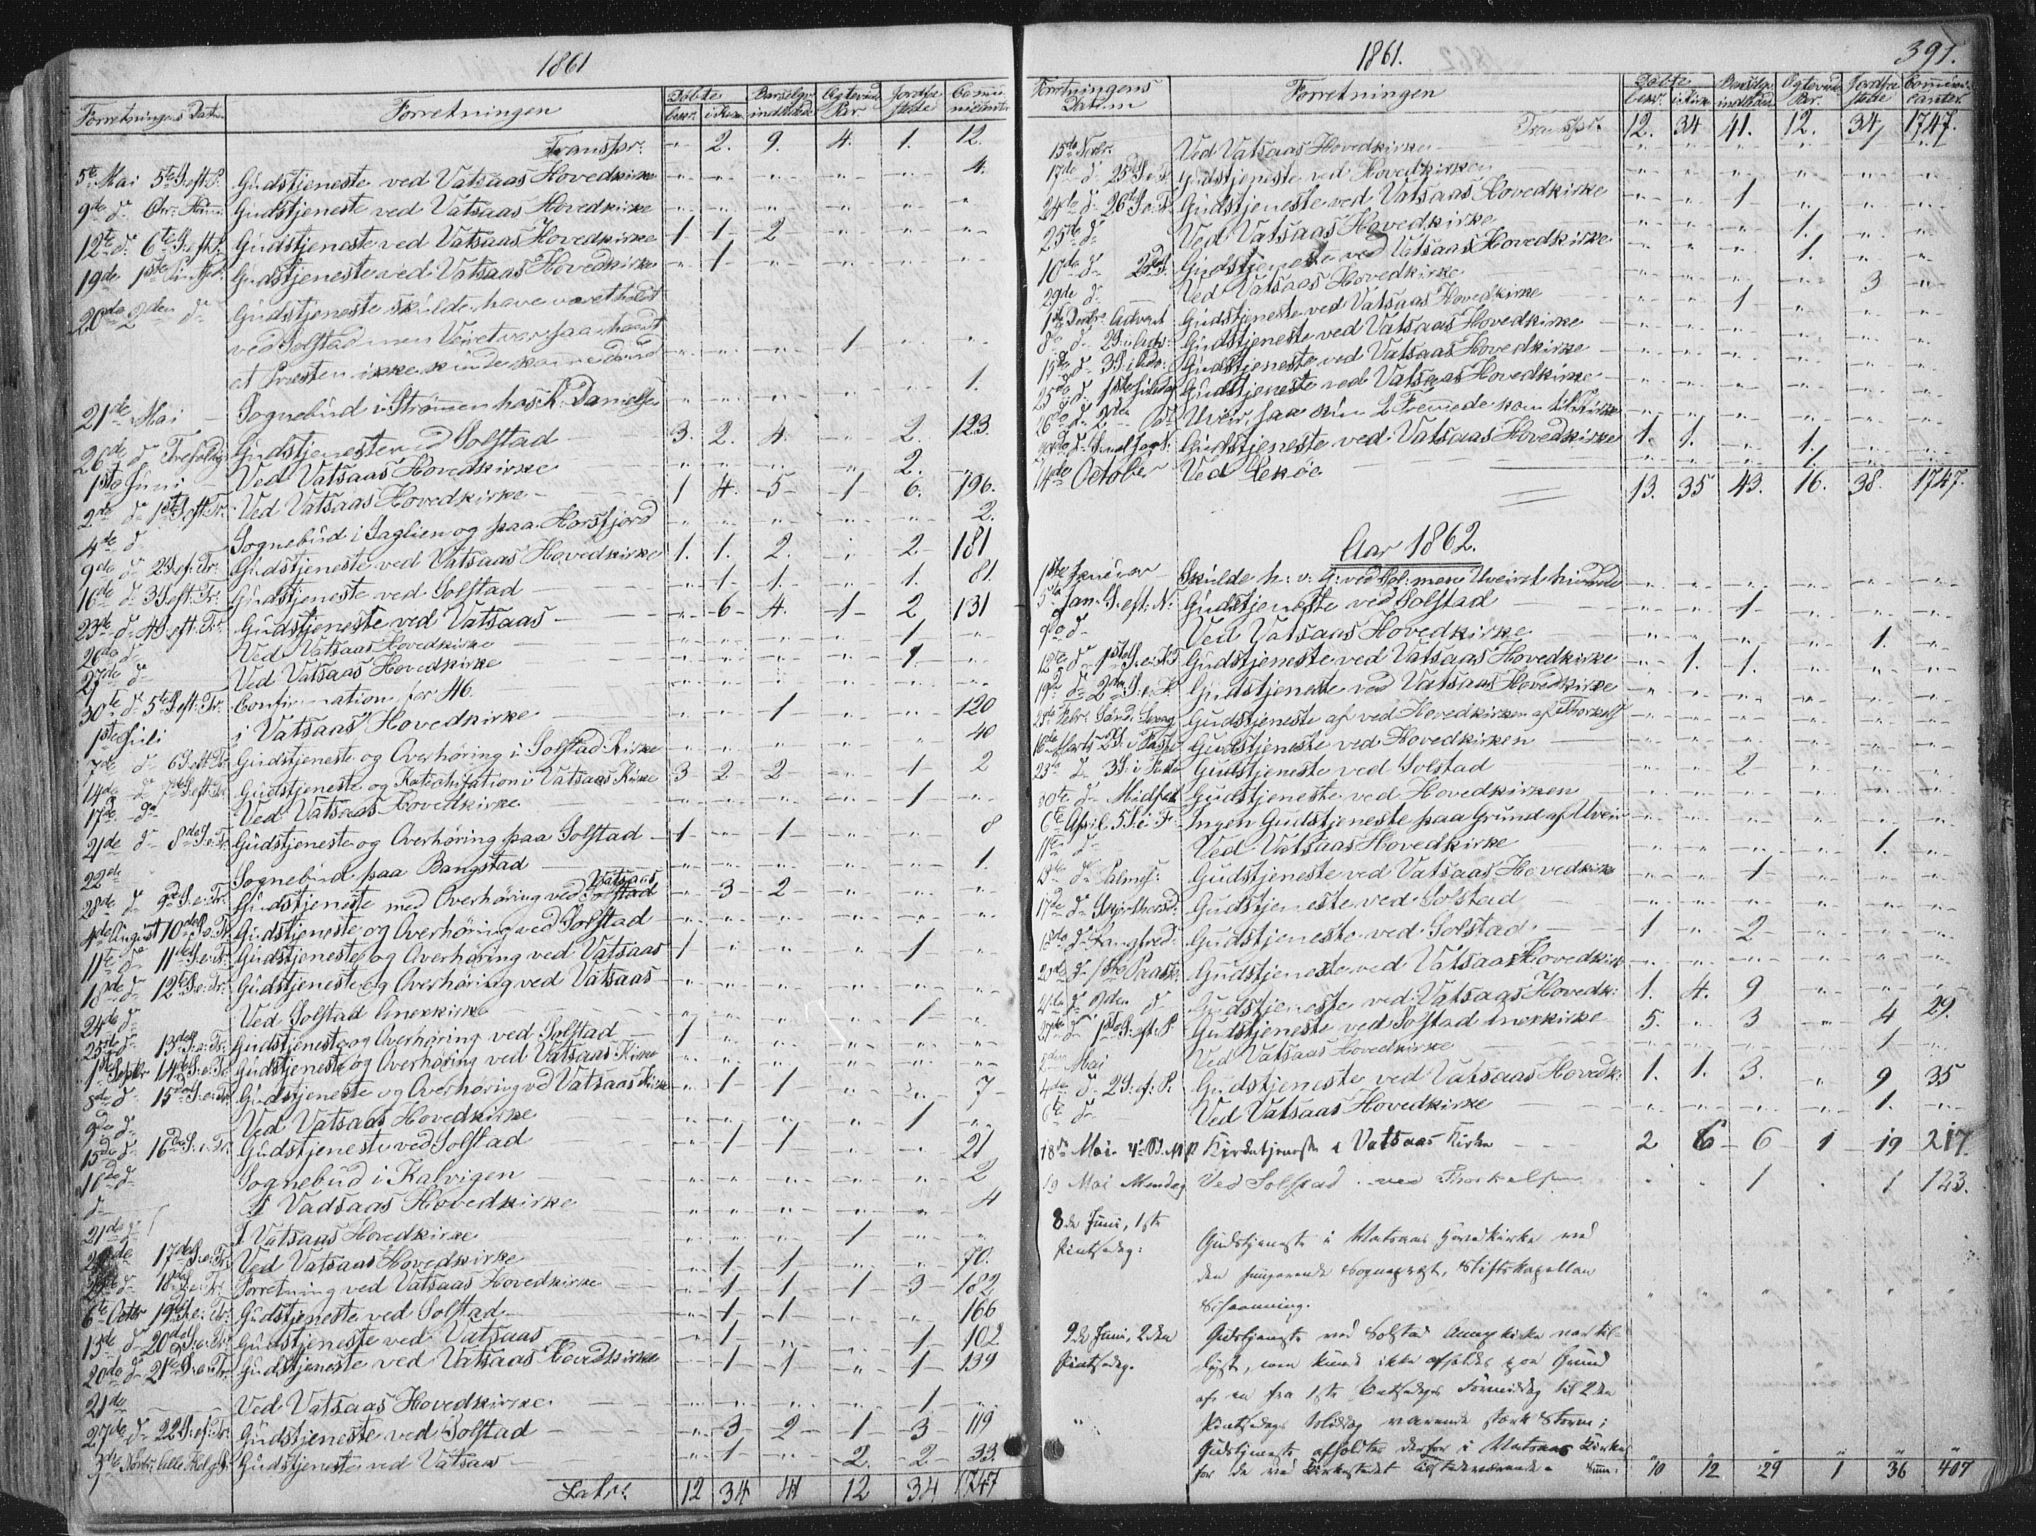 1861
Forretningen
Døbte
Transpr. " 2. 9. 4. 1. 12.
5te Mai 5te S. eft. P. Gudstjeneste ved Vatsaas Hovedkirke 4.
9de d. Chr. Him. Gudstjeneste ved Vatsaas Hovedkirke
12te d. 6te S. eft. P. Gudstjeneste ved Vatsaas Hovedkirke 1 1 2
19de 1ste Gudstjeneste ved Vatsaas Hovedkirke " 1
20de 2den d. Gudstjeneste skulde have været holdt
ved Solstad men Veiret var saa haardt
at Præsten ikke kunde 1
21de Mai Sognebud i Strømmen hos K. Danielsen 1.
26de d. Trefoldig. Gudstjeneste ved Solstad 3. 2. 4. " 2. 123.
1ste Juni Ved Vatsaas Hovedkirke 2.
2de d. 1ste S. eft. Tr. Ved Vatsaas Hovedkirke 1 4. 5 1 6. 196.
4de d. Sognebud i og paa Horsfjord 2.
9de d. 2 S. ef. Tr. Gudstjeneste ved Vatsaas Hovedkirke 1. 1. 2. " 2 181
16de d. 3 S. eft. Tr. Gudstjeneste ved Solstad " 1 1. " 1. 81.
23de d. 4 S. eft. Tr. Gudstjeneste ved Vatsaas " 6 4. 1 2 131
26de d. Ved Vatsaas Hovedkirke 1
27de d. Ved Vatsaas Hovedkirke 1.
30te d. 5te S. eft. Tr. Confirmation for 46.
1ste Juli i Vatsaas Hovedkirke 1 120
7de d. 6 S. eft. Tr. Gudstjeneste og Overhøring i Solstad Kirke 40
14de d. 7de S. eft. Tr. Gudstjeneste og Katechisation i Vatsaas Kirke 3 2 2 " 1 2
17de d. Ved Vatsaas Hovedkirke 1
21de d. 8de S. e. Tr. Gudstjeneste og Overhøring paa Solstad 1 " 1 " " 8
22de Sognebud paa Bangstad 1.
28de d. 9de S. e. Tr. Gudstjeneste med Overhøring ved Vatsaas " 3 2
4de August 10de S. e. Tr. Gudstjeneste og Overhøring ved Solstad
11te d. 11te S. e. Tr. Gudstjeneste og Overhøring ved Vatsaas 1 " " " 1
18de d. 12te S. e. Tr. Gudstjeneste og Overhøring ved Vatsaas
24de d. Ved Solstad Anexkirke 1
25de d. 13de S. e. Tr. Gudstjeneste og Overhøring ved Solstad 1
1ste Septbr 14de S. e. Tr. Gudstjeneste og Overhøring ved Vatsaas Kirke
8de d. 15de S. e. Tr. Gudstjeneste og Overhøring ved Vatsaas Kirke " 1 1 " " 7
9de d. Ved Vatsaas Hovedkirke 1
15de d. 16de S. e. Tr. Gudstjeneste ved Solstad " 1 1 " " 21
d. Sognebud i Kalvigen 2
d. I Vadsaas Hovedkirke 4
21de I Vatsaas Hovedkirke 1
17de S. e. Tr. Ved Vatsaas Hovedkirke " 1 1 " " 70.
18de S. e. Tr. Forretning ved Vatsaas Hovedkirke " 1 1 1 3 182
6te Octbr 19de S. e. Tr. Gudstjeneste ved Solstad " 1 1 " " 166
13de d. 20de S. e. Tr. Gudstjeneste ved Vatsaas " 1 " " 1 102.
20de d. 21de S. e. Tr. Gudstjeneste ved Vatsaas Hovedkirke " 1 1 " 1 139
21de Ved Vatsaas Hovedkirke 1
27de d. 22 S. ef. Tr. Gudstjeneste ved Solstad " 3 2 1 3 119
3de Novbr. Gudstjeneste ved Vatsaas " 1 " 2. 2 33.
Latr. 12 34 41 12 34 1747
1861. 391.
Forretningens Datum Forretningen Døbte
Transpr. 12. 34 41. 12. 34 1747.
15de Novbr. Ved Vatsaas Hovedkirke
17de d. 25de S. e. T. Gudstjeneste ved Hovedkirke
24de d. 26de S. e. T. Gudstjeneste ved Vatsaas Hovedkirke 1
25de d. Ved Vatsaas Hovedkirke 1.
Gudstjeneste ved Vatsaas Hovedkirke 1.
29de d. Ved Vatsaas Hovedkirke 3
Advent Gudstjeneste ved Vatsaas Hovedkirke 1
8de d. 2 S. i Adv. Gudstjeneste ved Vatsaas Hovedkirke
15de d. 3 S. i Adv. Gudstjeneste ved Vatsaas Hovedkirke
25de d. 1ste Juledag Gudstjeneste ved Vatsaas Hovedkirke
26de d. 2den d. Uveir, saa kun 2 Fremmede kom til Kirke
Gudstjeneste ved Vatsaas Hovedkirke 1. 1. " 1.
14de October Ved Lekøe
13. 35 43. 16. 38. 1747.
Aar 1862.
1ste Januar Skulde h. v. G. ved Sol. men Uveiret hindrede
5te Jan. S. eft. N. Gudstjeneste ved Solstad 1
9de d. Ved Vatsaas Hovedkirke 1.
12te d. 1ste S. e. H. 3 K. Gudstjeneste ved Vatsaas Hovedkirke " 1. 1.
19de d. 2den S. Gudstjeneste ved Vatsaas Hovedkirke
Febr. Gudstjeneste af ved Hovedkirken af Thorkels
16de Marts 2 S. i Faste Gudstjeneste ved Hovedkirken
23de d. 3 S. i Faste Gudstjeneste ved Solstad 2
30te d. Midfast Gudstjeneste ved Hovedkirken
6te April 5 S. i F. Ingen Gudstjeneste paa Grund af Uveir
11te d. Ved Vatsaas Hovedkirke 1.
13de d. Palmes. Gudstjeneste ved Vatsaas Hovedkirke 1
17de d. Skjærthorsd. Gudstjeneste ved Solstad
18de d. Langfred. Gudstjeneste ved Solstad 1 " 2
20de d. 1ste Paaske Gudstjeneste ved Vatsaas Hovedkirk
21de d. 2den d. Gudstjeneste ved Vatsaas Hovedk. 1. 4. 9
27de d. 1ste S. ef. P. Gudstjeneste ved Solstad Anexkirke 5. " 3 " 4 29.
2den Mai Ved Vatsaas Hovedkirke 1
4de d. 2 S. ef. P. Gudstjeneste ved Vatsaas Hovedk. 1. 1. 3. " 9 35
6te d. Ved Vatsaas Hovedkirke 1.
18de Mai Kirketjeneste i Vatsaas Kirke 2 6 6 1 19 217.
19 Mai Mandag Ved Solstad ved Thorkelsen " " 1 " 1 123.
8de Juni, 1ste Pintsedag: Gudstjeneste i Vatsaas Hovedkirke ved
den fungerende Sognepræst, Stiftskapellan
Schanning.
9de Juni, 2den Pintsedag. Gudstjeneste ved Solstad Annexkirke var til-
lyst, men kunde ikke afholdes paa Grund
af en fra 1ste Pintsedags Formiddag til 2den
Pintsedags Middag værende stærk Storm;
Gudstjeneste afholdtes derfor i Vatsaas Kirke
for de ved Kirkestedet tilstedeværende. Sum: 10 12 29 1 36 407